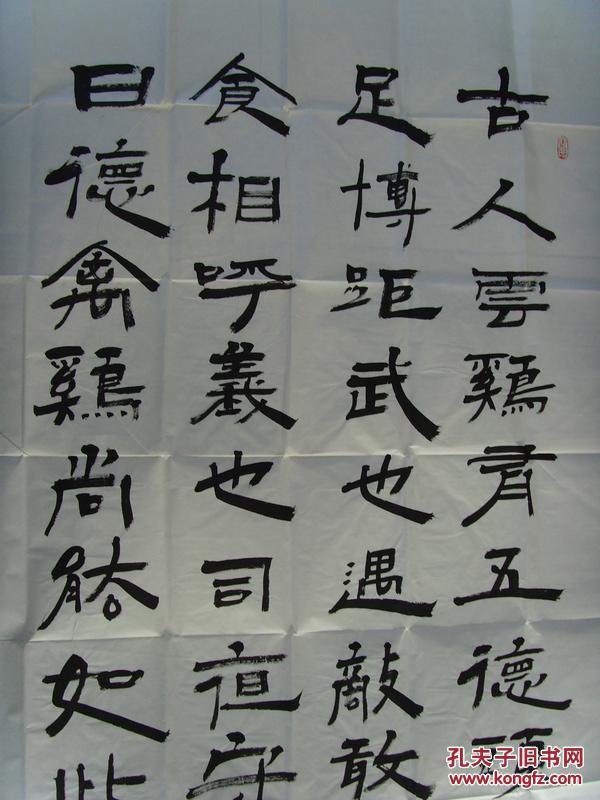 古人雲鷄有五德頭
足博距武也遇敵敢
食相呼義也司亱守
曰德禽鷄尚能如此
孔夫子旧书网
www.kongfz.com